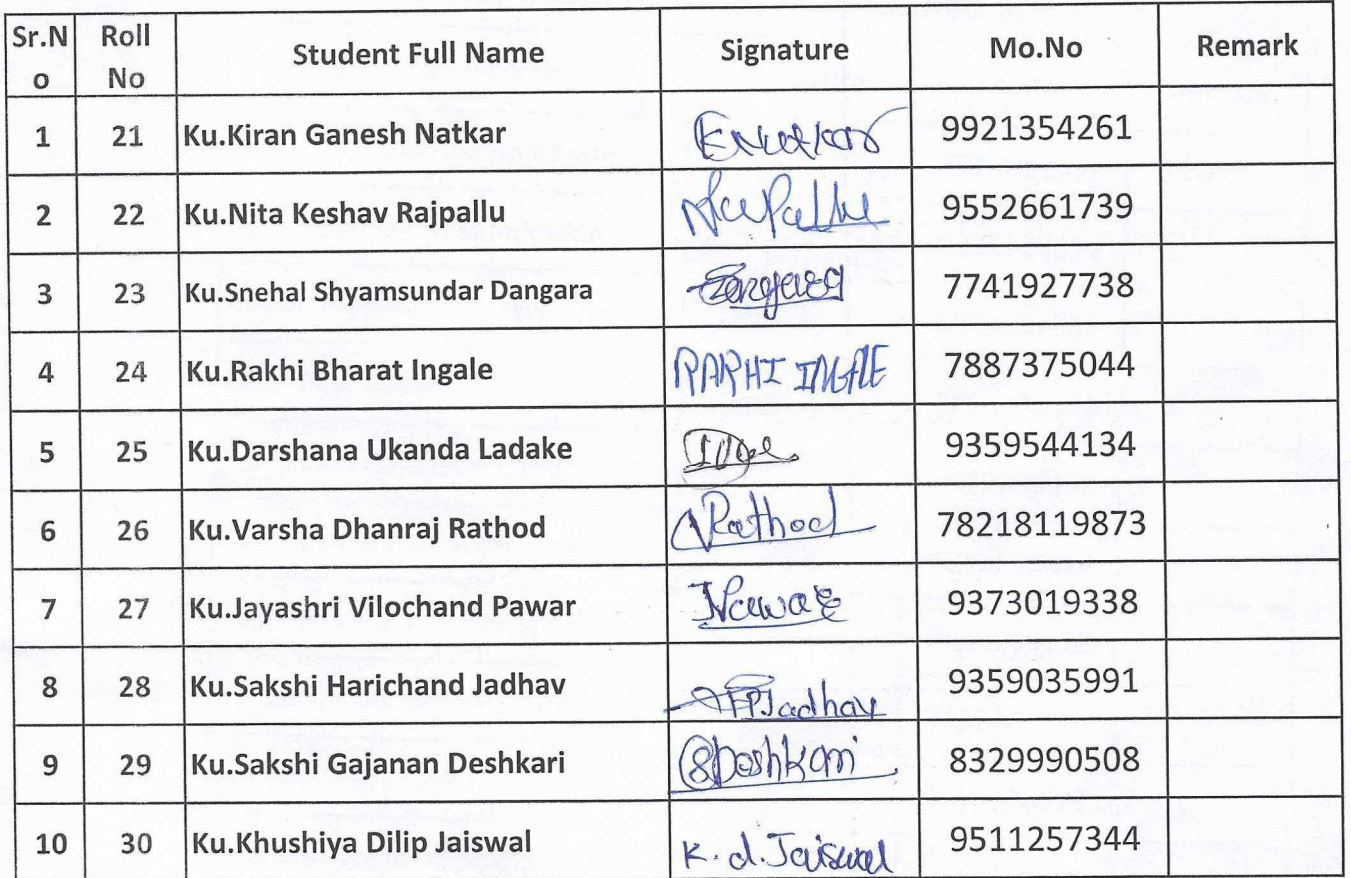 Sr.N
o Roll
No Student Full Name Signature Mo.No Remark
1 21 Ku.Kiran Ganesh Natkar 9921354261
2 22 Ku.Nita Keshav Rajpallu 9552661739
3 23 Ku.Snehal Shyamsundar Dangara 7741927738
4 24 Ku.Rakhi Bharat Ingale RAKHI INGALE 7887375044
5 25 Ku.Darshana Ukanda Ladake 9359544134
6 26 Ku.Varsha Dhanraj Rathod Rathod 78218119873
7 27 Ku.Jayashri Vilochand Pawar 9373019338
8 28 Ku.Sakshi Harichand Jadhav Jadhav 9359035991
9 29 Ku.Sakshi Gajanan Deshkari SDeshkari 8329990508
10 30 Ku.Khushiya Dilip Jaiswal K.d.Jaiswal 9511257344